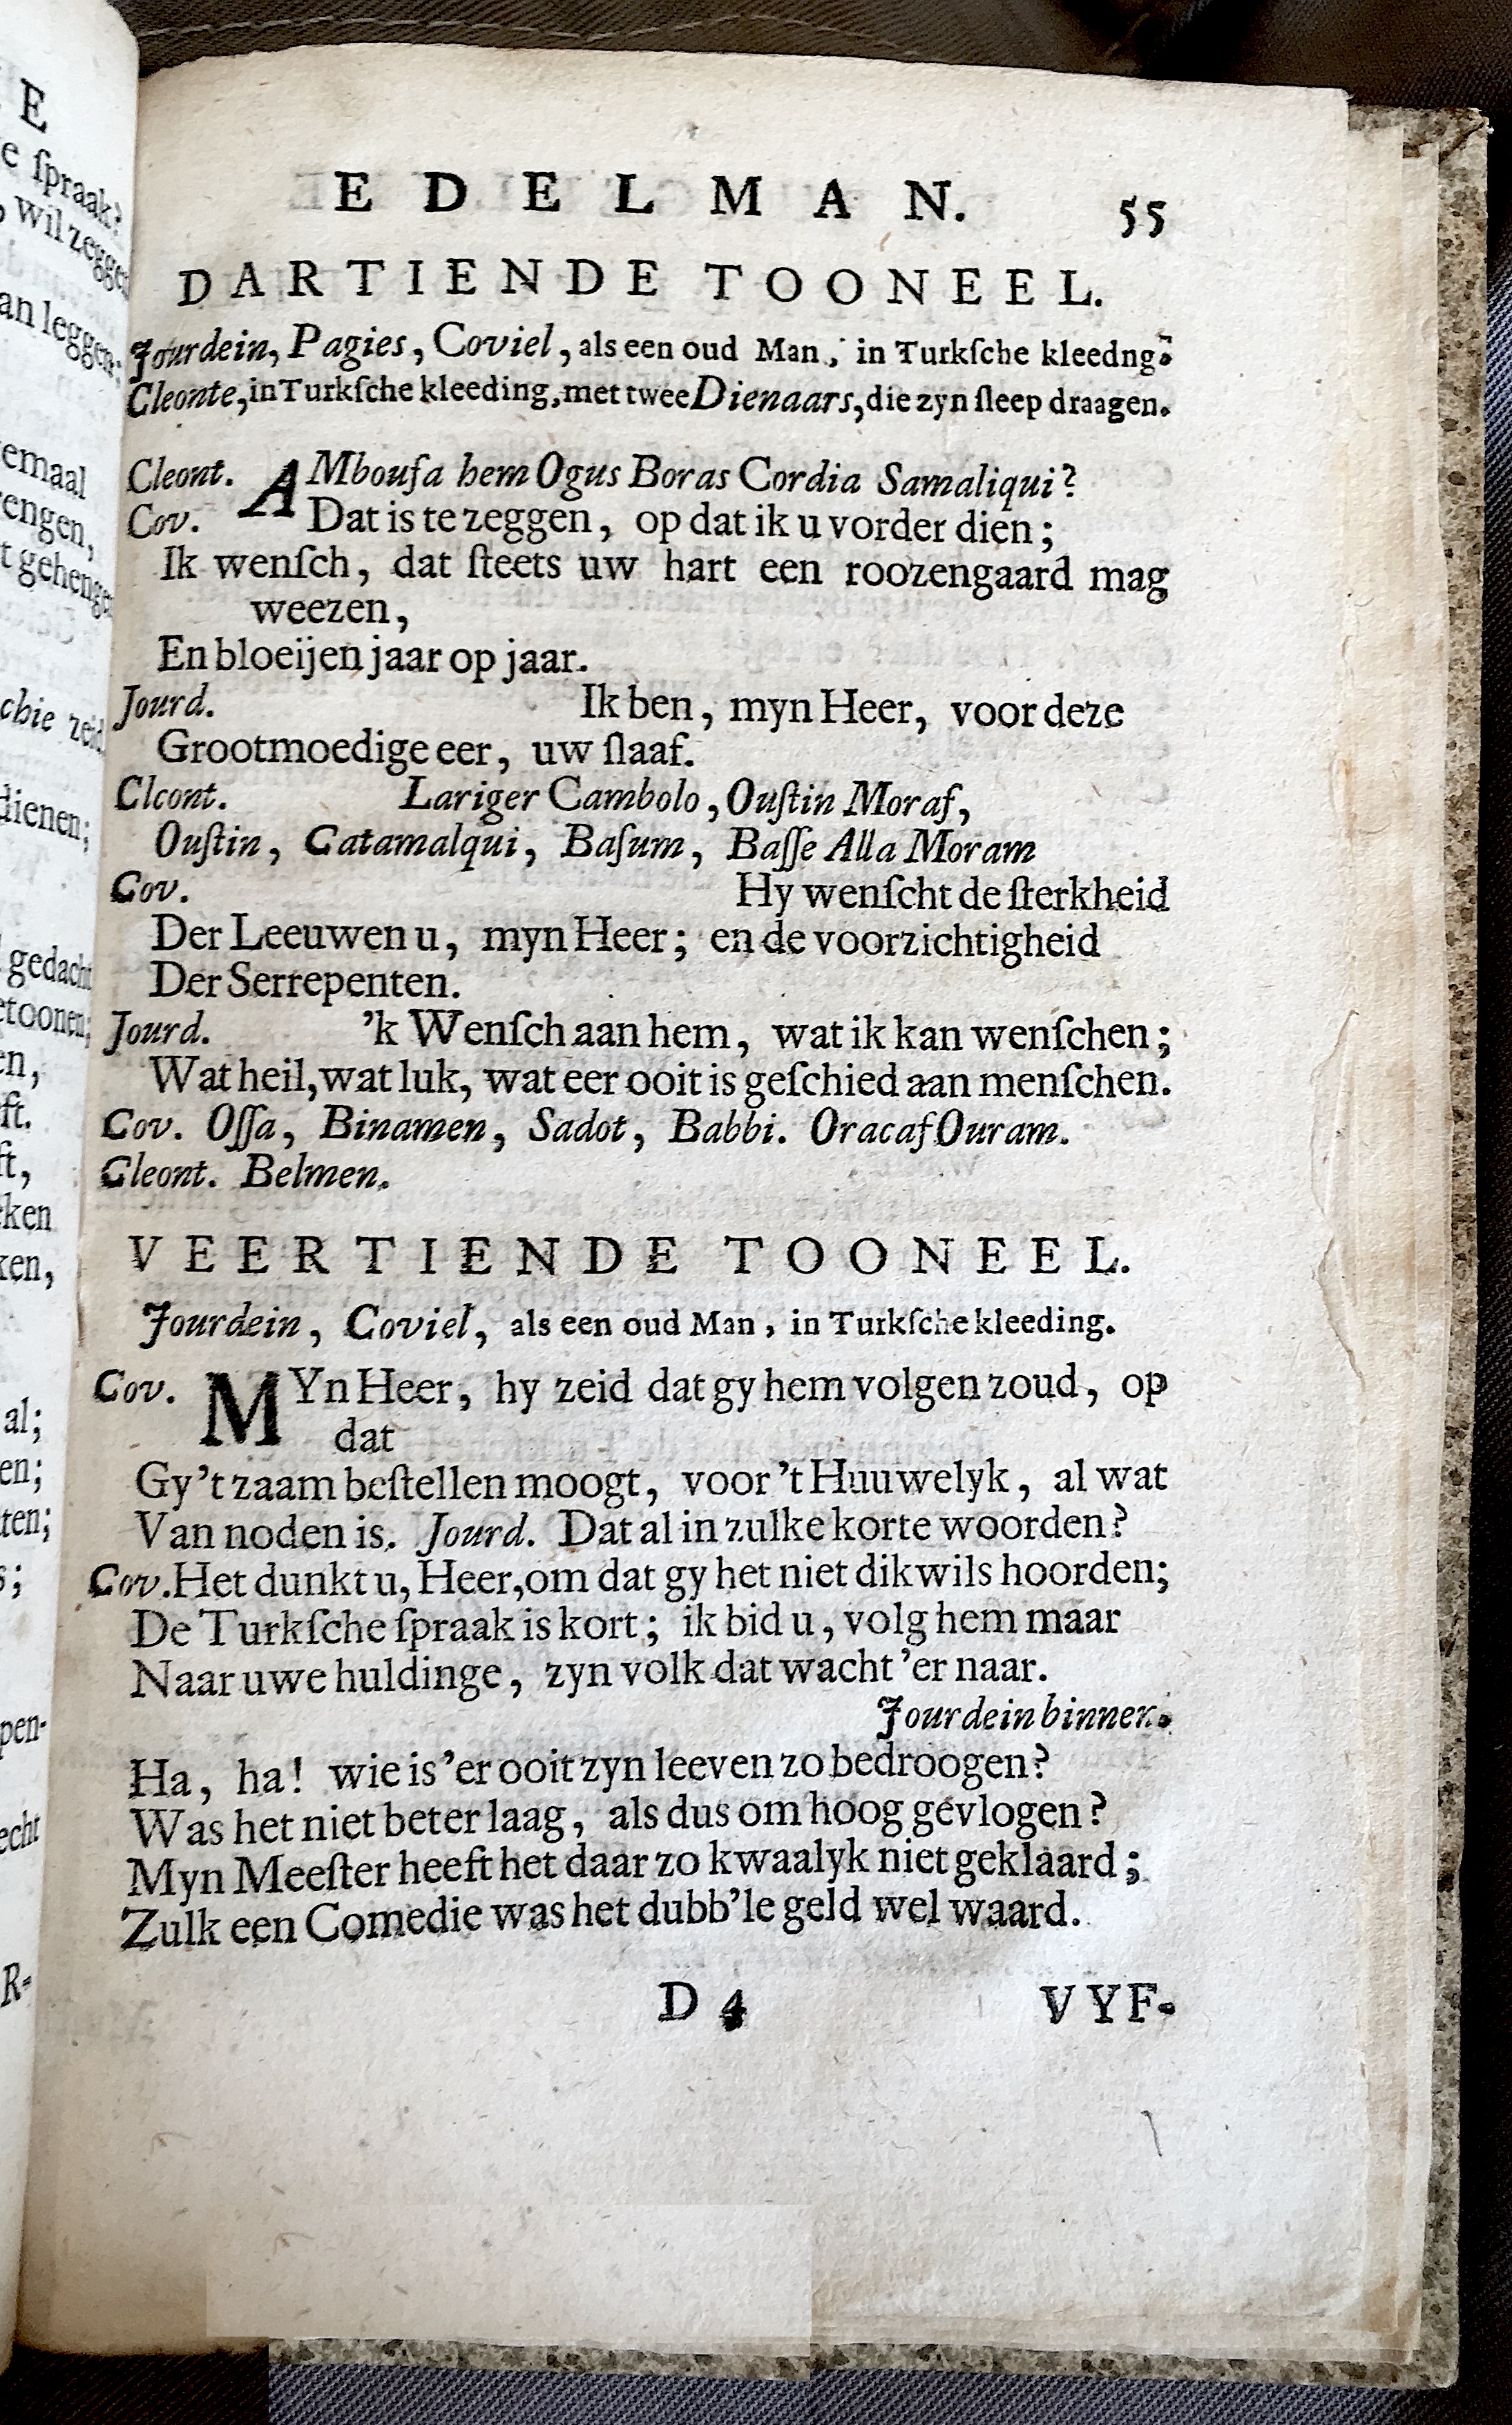 EDELMAN. 55
DARTIENDE TOONEEL.
Jourdein, Pagies, Coviel, als een oud Man, in Turkſche kleedng.
Cleonte, in Turkſche kleeding, met twee Dienaars, die zyn ſleep draagen.
Cleont. AMbouſa hem Ogus Boras Cordia Samaliqui?
Cov. Dat is te zeggen, op dat ik u vorder dien;
Ik wenſch, dat ſteets uw hart een roozengaard mag
weezen,
En bloeijen jaar op jaar.
Jourd. Ik ben, myn Heer, voor deze
Grootmoedige eer, uw ſlaaf.
Clcont. Lariger Cambolo, Ouſtin Moraf,
Ouſtin, Catamalqui, Baſum, Baſſe Alla Moram
Cov. Hy wenſcht de ſterkheid
Der Leeuwen u, myn Heer; en de voorzichtigheid
Der Serrepenten.
Jourd. 'k Wenſch aan hem, wat ik kan wenſchen;
Wat heil, wat luk, wat eer ooit is geſchied aan menſchen.
Cov. Oſſa, Binamen, Sadot, Babbi. Oracaf Ouram.
Cleont. Belmen.
VEERTIENDE TOONEEL.
Jourdein, Coviel, als een oud Man, in Turkſche kleeding.
Cov. MYn Heer, hy zeid dat gy hem volgen zoud, op
dat
Gy 't zaam beſtellen moogt, voor 't Huuwelyk, al wat
Van noden is. Jourd. Dat al in zulke korte woorden?
Cov. Het dunkt u, Heer, om dat gy het niet dikwils hoorden;
De Turkſche ſpraak is kort; ik bid u, volg hem maar
Naar uwe huldinge, zyn volk dat wacht 'er naar.
Jourdein binnen.
Ha, ha! wie is 'er ooit zyn leeven zo bedroogen?
Was het niet beter laag, als dus om hoog gevlogen?
Myn Meeſter heeft het daar zo kwaalyk niet geklaard;
Zulk een Comedie was het dubb'le geld wel waard.
D 4 VYF-